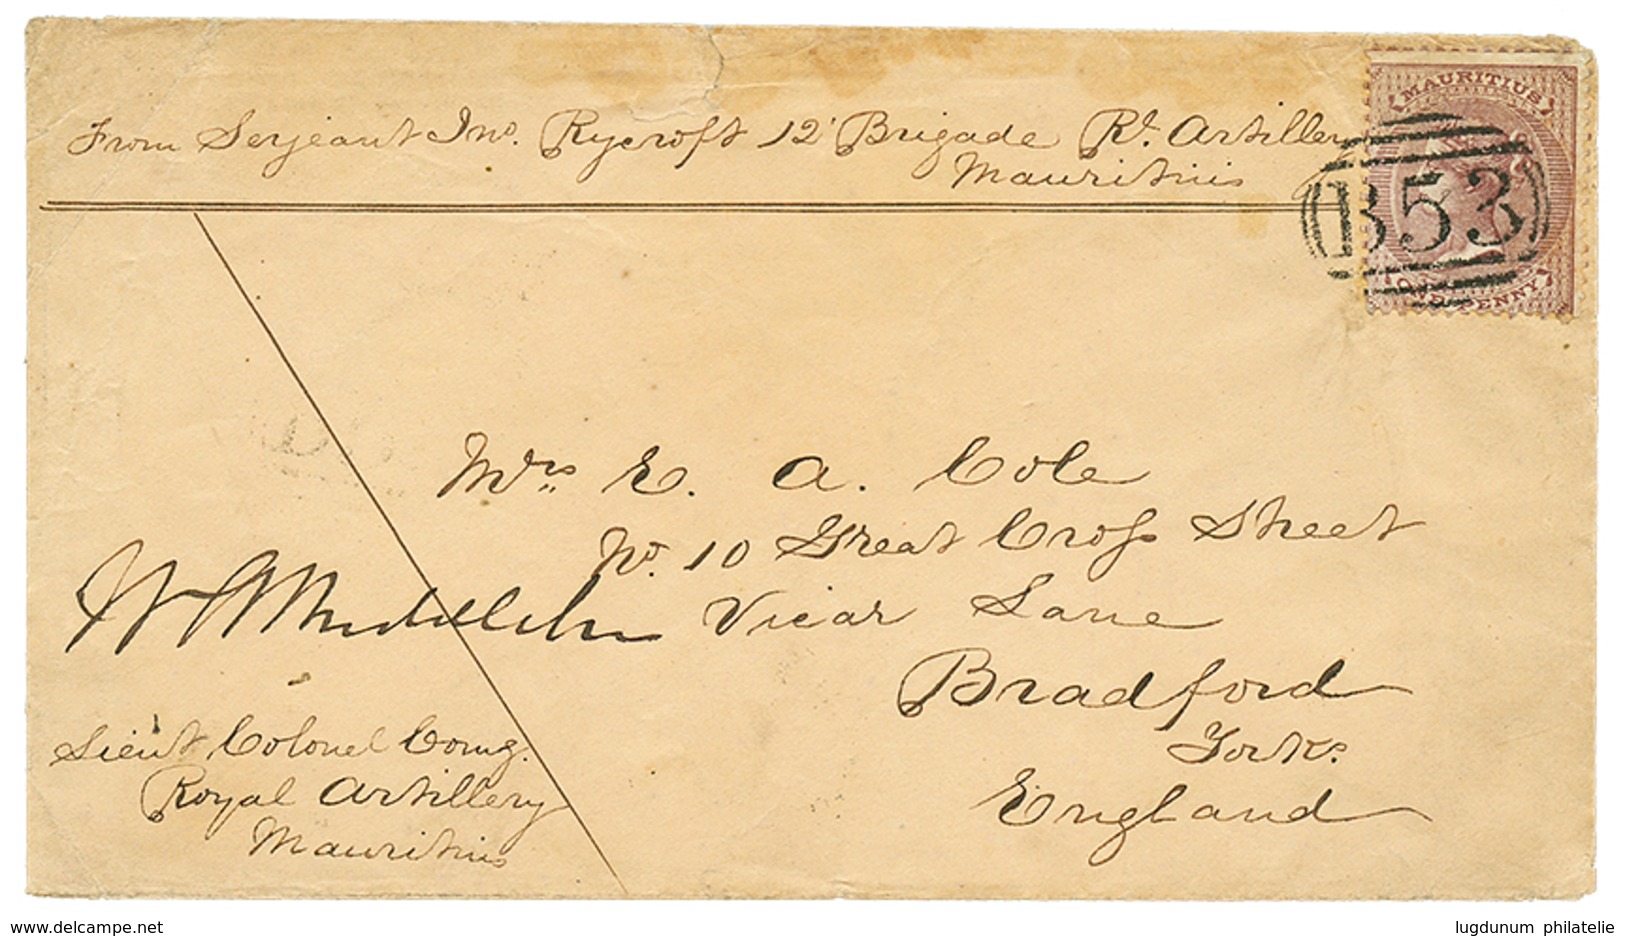 From Serjeant Jno. Rycroft 12 Brigade Rl. Artillery
Mauritius
MAURITIUS
B53
ONE PENNY
Mrs E. A. Cole
No. 10 Great Cross Street
Vicar Lane
Bradford
Yorks.
England
Lieut Colonel Comg.
Royal Artillery
Mauritius
delcampe.net
lugdunum philatelie